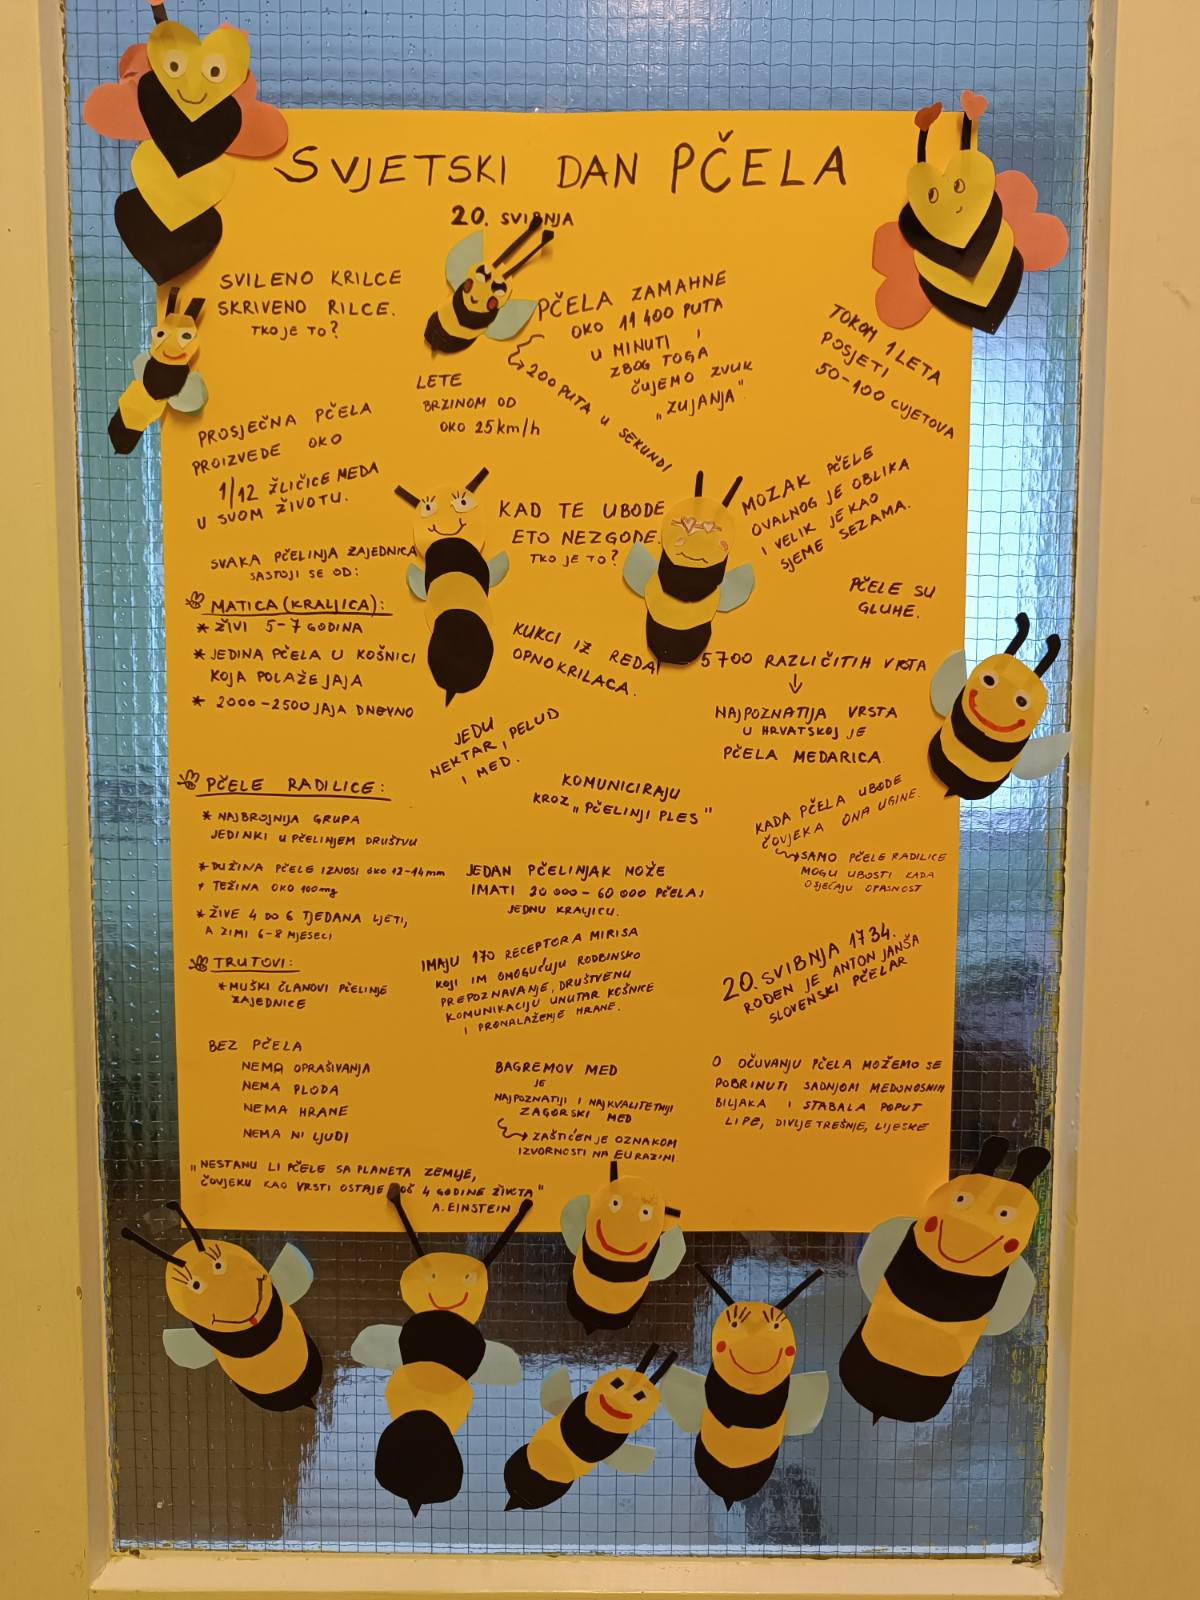 SVJETSKI DAN PČELA
20. SVIBNJA
SVILENO KRILCE
SKRIVENO RILCE.
TKO JE TO?
PČELA ZAMAHNE
OKO 11 400 PUTA
U MINUTI I
ZBOG TOGA
ČUJEMO ZVUK
„ZUJANJA"
200 PUTA U SEKUNDI
TOKOM 1 LETA
POSJETI
50-100 CVJETOVA
LETE
BRZINOM OD
OKO 25km/h
PROSJEČNA PČELA
PROIZVEDE OKO
1/12 ŽLIČICE MEDA
U SVOM ŽIVOTU.
KAD TE UBODE
ETO NEZGODE.
TKO JE TO?
MOZAK PČELE
OVALNOG JE OBLIKA
I VELIK JE KAO
SJEME SEZAMA.
SVAKA PČELINJA ZAJEDNICA
SASTOJI SE OD:
MATICA (KRALJICA):
* ŽIVI 5-7 GODINA
* JEDINA PČELA U KOŠNICI
KOJA POLAŽE JAJA
* 2000-2500 JAJA DNEVNO
PČELE SU
GLUHE.
KUKCI IZ REDA
OPNOKRILACA.
5700 RAZLIČITIH VRSTA
NAJPOZNATIJA VRSTA
U HRVATSKOJ JE
PČELA MEDARICA
JEDU
NEKTAR, PELUD
I MED.
KOMUNICIRAJU
KROZ „PČELINJI PLES"
KADA PČELA UBODE
ČOVJEKA ONA UGINE.
SAMO PČELE RADILICE
MOGU UBOSTI KADA
OSJEĆAJU OPASNOST
PČELE RADILICE:
* NAJBROJNIJA GRUPA
JEDINKI U PČELINJEM DRUŠTVU
* DUŽINA PČELE IZNOSI OKO 12-14mm
* TEŽINA OKO 100mg
* ŽIVE 4 DO 6 TJEDANA LJETI,
A ZIMI 6-8 MJESECI
JEDAN PČELINJAK MOŽE
IMATI 20 000-60 000 PČELA I
JEDNU KRALJICU.
TRUTOVI:
* MUŠKI ČLANOVI PČELINJE
ZAJEDNICE
IMAJU 170 RECEPTORA MIRISA
KOJI IM OMOGUĆUJU RODBINSKO
PREPOZNAVANJE, DRUŠTVENU
KOMUNIKACIJU UNUTAR KOŠNICE
I PRONALAŽENJE HRANE.
20. SVIBNJA 1734.
ROĐEN JE ANTON JANŠA
SLOVENSKI PČELAR
BEZ PČELA
NEMA OPRAŠIVANJA
NEMA PLODA
NEMA HRANE
NEMA NI LJUDI
BAGREMOV MED
JE
NAJPOZNATIJI I NAJKVALITETNIJI
ZAGORSKI MED
ZAŠTIĆEN JE OZNAKOM
IZVORNOSTI NA EU RAZINI
O OČUVANJU PČELA MOŽEMO SE
POBRINUTI SADNJOM MEDONOSNIH
BILJAKA I STABALA POPUT
LIPE, DIVLJE TREŠNJE, LIJESKE
„NESTANU LI PČELE SA PLANETA ZEMLJE,
ČOVJEKU KAO VRSTI OSTAJE JOŠ 4 GODINE ŽIVOTA"
A. EINSTEIN